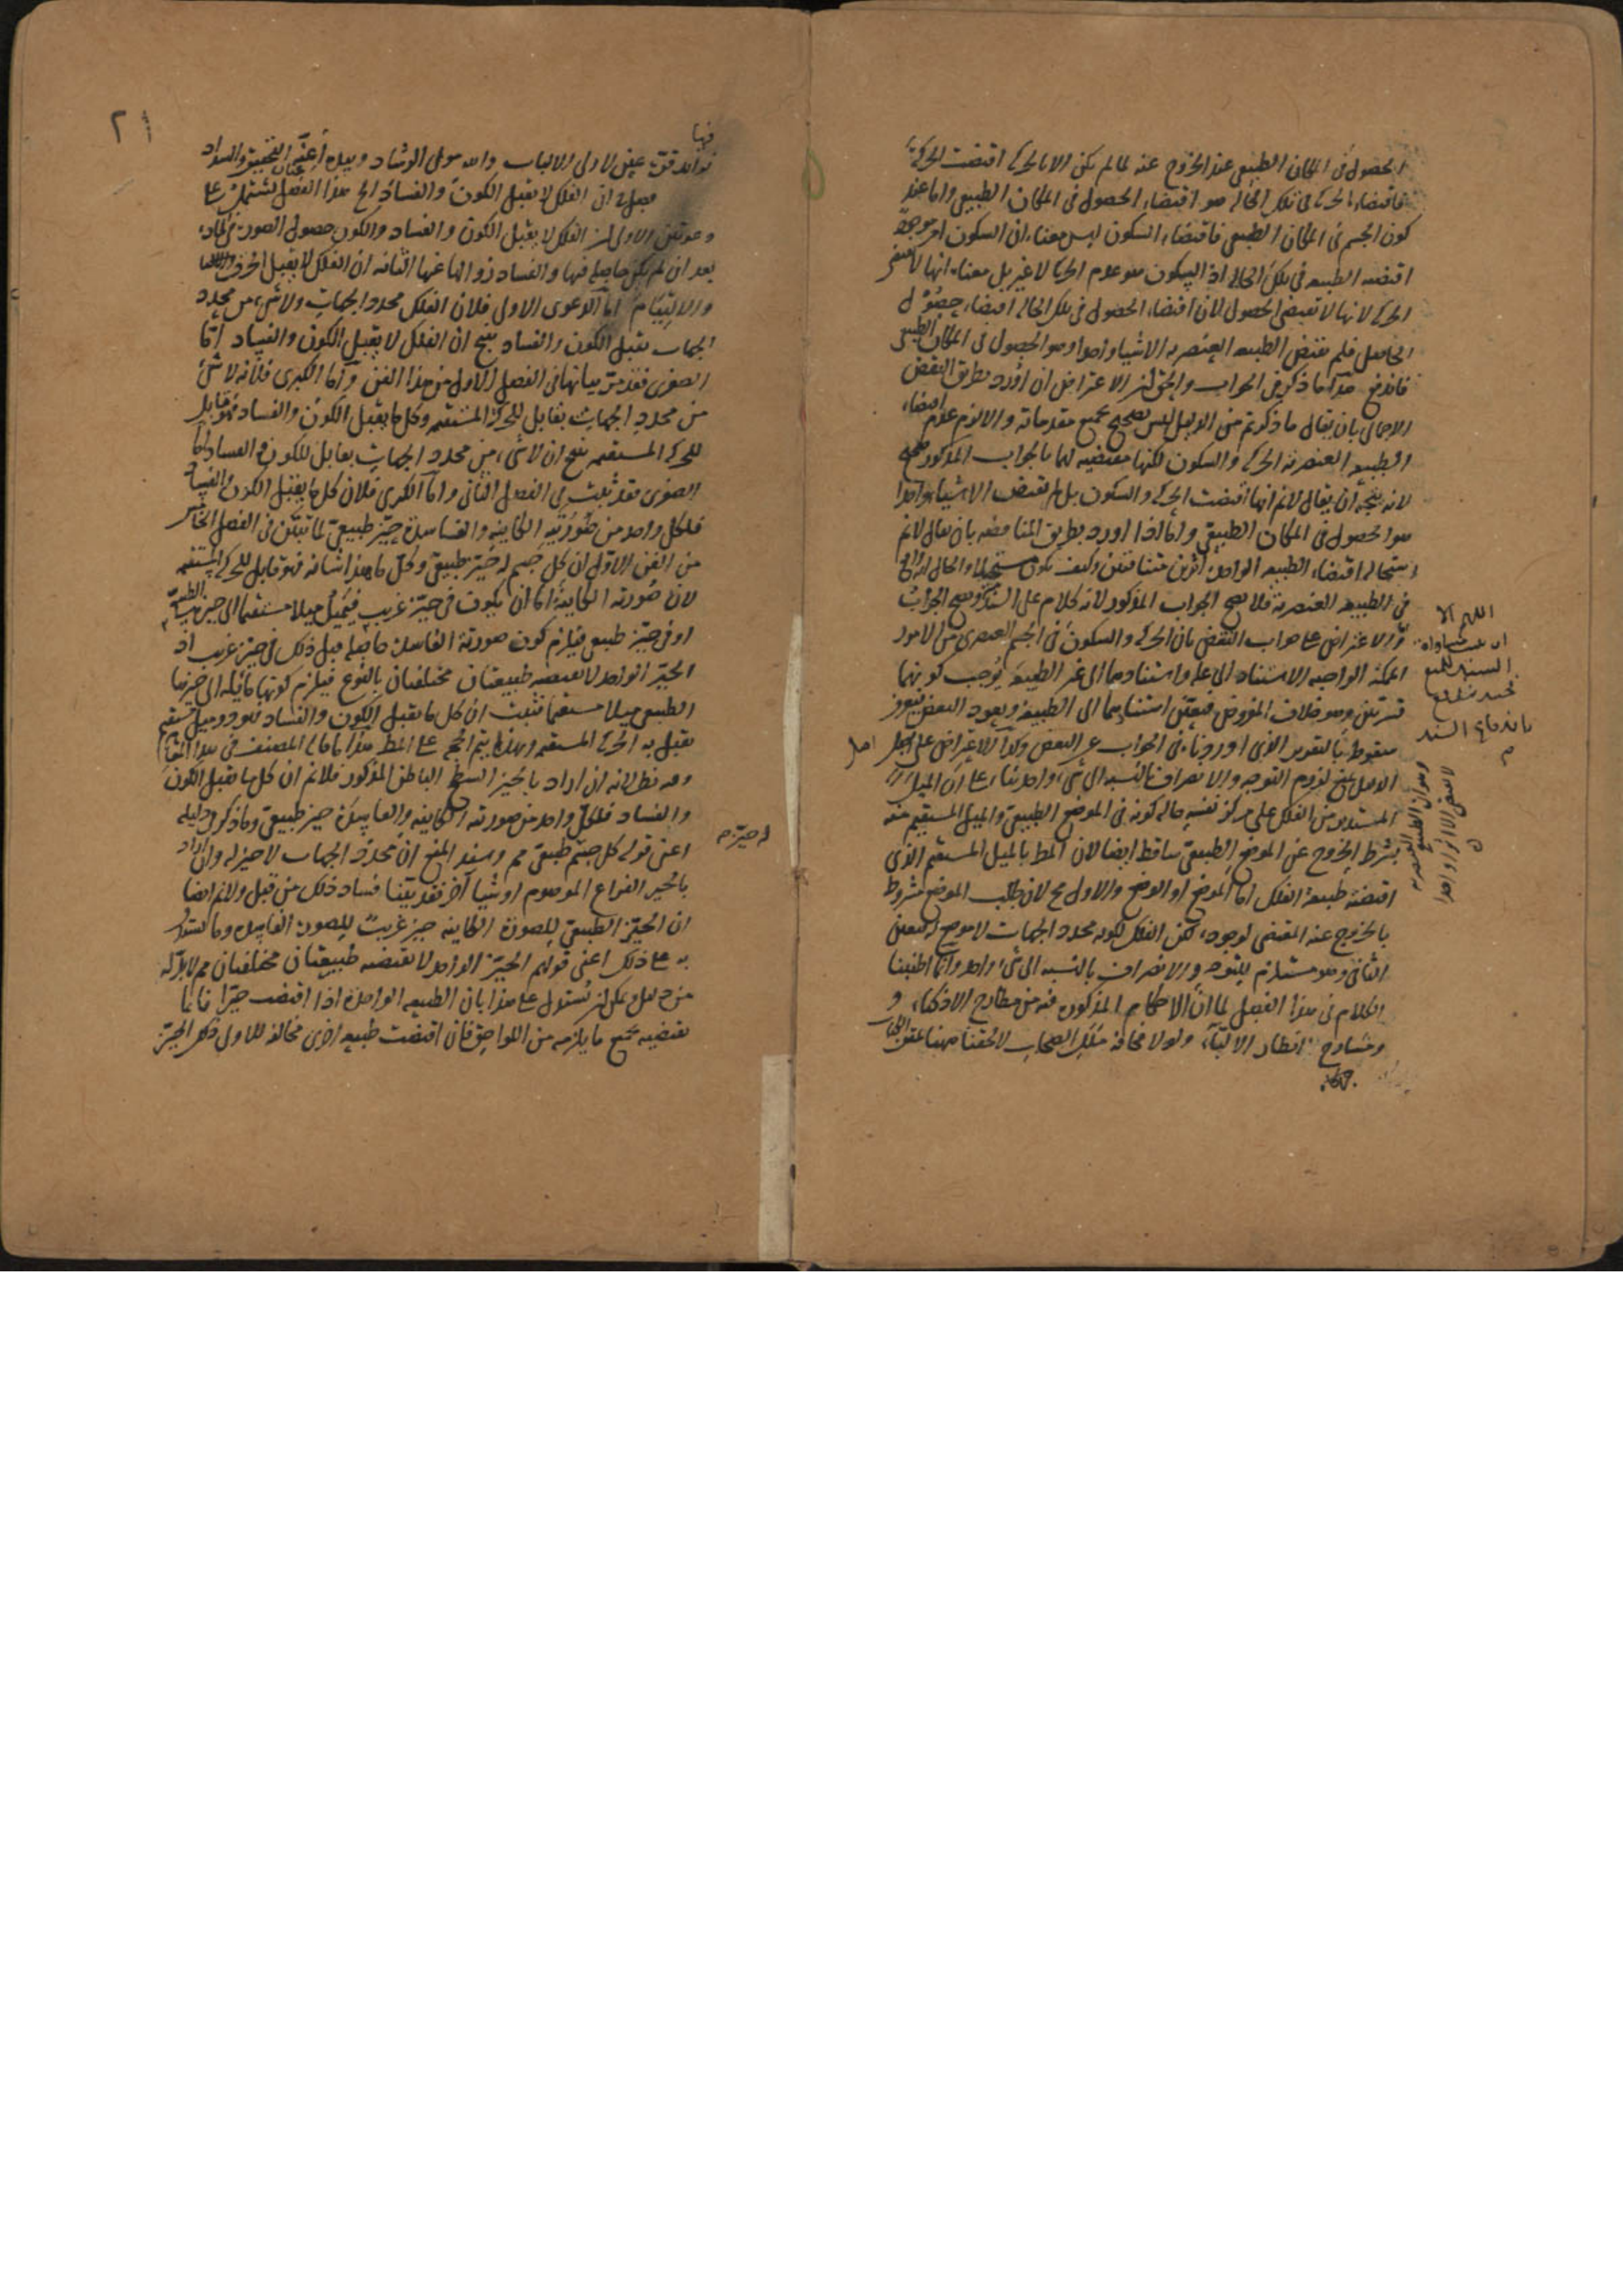 الحصول فى المكان الطبيعى عند الخروج عنه لما لم يكن الا بالحركة اقتضت الحركة
فاقتضاء الحركة فى تلك الحالة هو اقتضاء الحصول فى المكان الطبيعى واما عند
كون الجسم فى المكان الطبيعى فاقتضاء السكون ليس معناه ان السكون امر موجود
اقتضته الطبيعة فى تلك الحالة اذ السكون هو عدم الحركة لا غير بل معناه انها لا تقتضى
الحركة لانها لا تقتضى الحصول لان اقتضاء الحصول فى تلك الحالة اقتضاء حصول
الحاصل فلم تقتض الطبيعة العنصرية الا شيئا واحدا وهو الحصول فى المكان الطبيعى
فاندفع هذا ما ذكر فى الجواب والحق ان الاعتراض ان اورد بطريق النقض
الاجمالى بان يقال ما ذكرتم من الدليل ليس بصحيح بجميع مقدماته والا لزم عدم اقتضاء
الطبيعة العنصرية الحركة والسكون لكنها مقتضية لهما فالجواب المذكور صحيح
لانه يتجه ان يقال لا نم انها اقتضت الحركة والسكون بل لم تقتض الا شيئا واحدا
هو الحصول فى المكان الطبيعى واما اذا اورد بطريق المناقضة بان يقال لا نم
استحالة اقتضاء الطبيعة الواحدة اثرين متنافيين وكيف يكون مستحيلا والحال انه واقع
فى الطبيعة العنصرية فلا يصح الجواب المذكور لانه كلام على السند
والاعتراض على جواب النقض بان الحركة والسكون فى الجسم العنصرى من الامور
الممكنة الواجبة الاستناد الى علة واستنادهما الى غير الطبيعة يوجب كونهما
قسريين وهو خلاف المفروض فتعين استنادهما الى الطبيعة ويعود النقض
سقوطه بالتقرير الذى اوردناه فى الجواب عن النقض وكذا الاعتراض على اصل
الدليل بمنع لزوم التوجه والانصراف بالنسبة الى شىء واحد بناء على ان الميل
المستدير من الفلك على مركز نفسه حالة كونه فى الموضع الطبيعى والميل المستقيم منه
بشرط الخروج عن الموضع الطبيعى ساقط ايضا لان المط بالميل المستقيم الذى
اقتضته طبيعة الفلك اما الموضع او الوضع والاول مح لان طلب الموضع مشروط
بالخروج عنه المقتضى لوجوده لكن الفلك لكونه محدد الجهات لا موضع له فتعين
الثانى وهو مستلزم للتوجه والانصراف بالنسبة الى شىء واحد وانما اطنبنا
الكلام فى هذا الفصل لما ان الاحكام المذكورة فيه من مطارح الاذكياء و
ومسارح انظار الالباء ولولا مخافة الاصحاب لالحقنا
اللهم الا
السند للمنع
باندفاع السند
م
اصل
٢١
فيها
فوائد تقر عيون لاولى الالباب والله مولى الرشاد وبيده اعنة التحقيق والسداد
فصل فى ان الفلك لا يقبل الكون والفساد الخ هذا الفصل يشتمل على
دعوتين الاولى ان الفلك لا يقبل الكون والفساد والكون حصول الصورة فى المادة
بعد ان لم يكن حاصلة فيها والفساد زوالها عنها الثانية ان الفلك لا يقبل الخرق
والالتيام اما الدعوى الاولى فلان الفلك محدد الجهات ولا شىء من محدد
الجهات يقبل الكون والفساد ينتج ان الفلك لا يقبل الكون والفساد اما
الصغرى فقد مر بيانها فى الفصل الاول من هذا الفن واما الكبرى فلانه لا شىء
من محدد الجهات بقابل للحركة المستقيمة وكل ما يقبل الكون والفساد فهو قابل
للحركة المستقيمة ينتج ان لا شىء من محدد الجهات بقابل للكون والفساد اما
الصغرى فقد ثبتت فى الفصل الثانى واما الكبرى فلان كل ما يقبل الكون والفساد
فلكل واحد من صورتيه الكاينة والفاسدة حيز طبيعى لما تبين فى الفصل الخامس
من الفن الاول ان كل جسم له حيز طبيعى وكل ما هذا شانه فهو قابل للحركة المستقيمة
لان صورته الكاينة اما ان يكون فى حيز غريب فتميل ميلا مستقيما الى حيزها الطبيعى
او فى حيز طبيعى فيلزم كون صورته الفاسدة حاصلة قبل ذلك فى حيز غريب اذ
الحيز الواحد لا تقتضيه طبيعتان مختلفتان بالنوع فيلزم كونها مائلة الى حيزها
الطبيعى ميلا مستقيما فثبت ان كل ما يقبل الكون والفساد فهو ذو ميل مستقيم
يقبل به الحركة المستقيمة وبهذا يتم الحجة على المط هذا ما قاله المصنف فى هذا المقام
وفيه نظر لانه ان اراد بالحيز السطح الباطن المذكور فلا نم ان كل ما يقبل الكون
والفساد فلكل واحد من صورته الكاينة والفاسدة حيز طبيعى وما ذكر فى دليله
اعنى قوله كل جسم طبيعى مم وسند المنع ان محدد الجهات لا حيز له وان اراد
بالحيز الفراغ الموهوم او شيئا آخر فقد بينا فساد ذلك من قبل ولا نم ايضا
ان الحيز الطبيعى للصورة الكاينة حيز غريب للصورة الفاسدة وما استدل
به على ذلك اعنى قولهم الحيز الواحد لا تقتضيه طبيعتان مختلفتان مم لا بد له
من دليل يمكن ان يستدل على هذا بان الطبيعة الواحدة اذا اقتضت حيزا فانما
تقتضيه بجميع ما يلزمه من اللواحق فان اقتضت طبيعة اخرى مخالفة للاولى ذلك الحيز
له حيز م